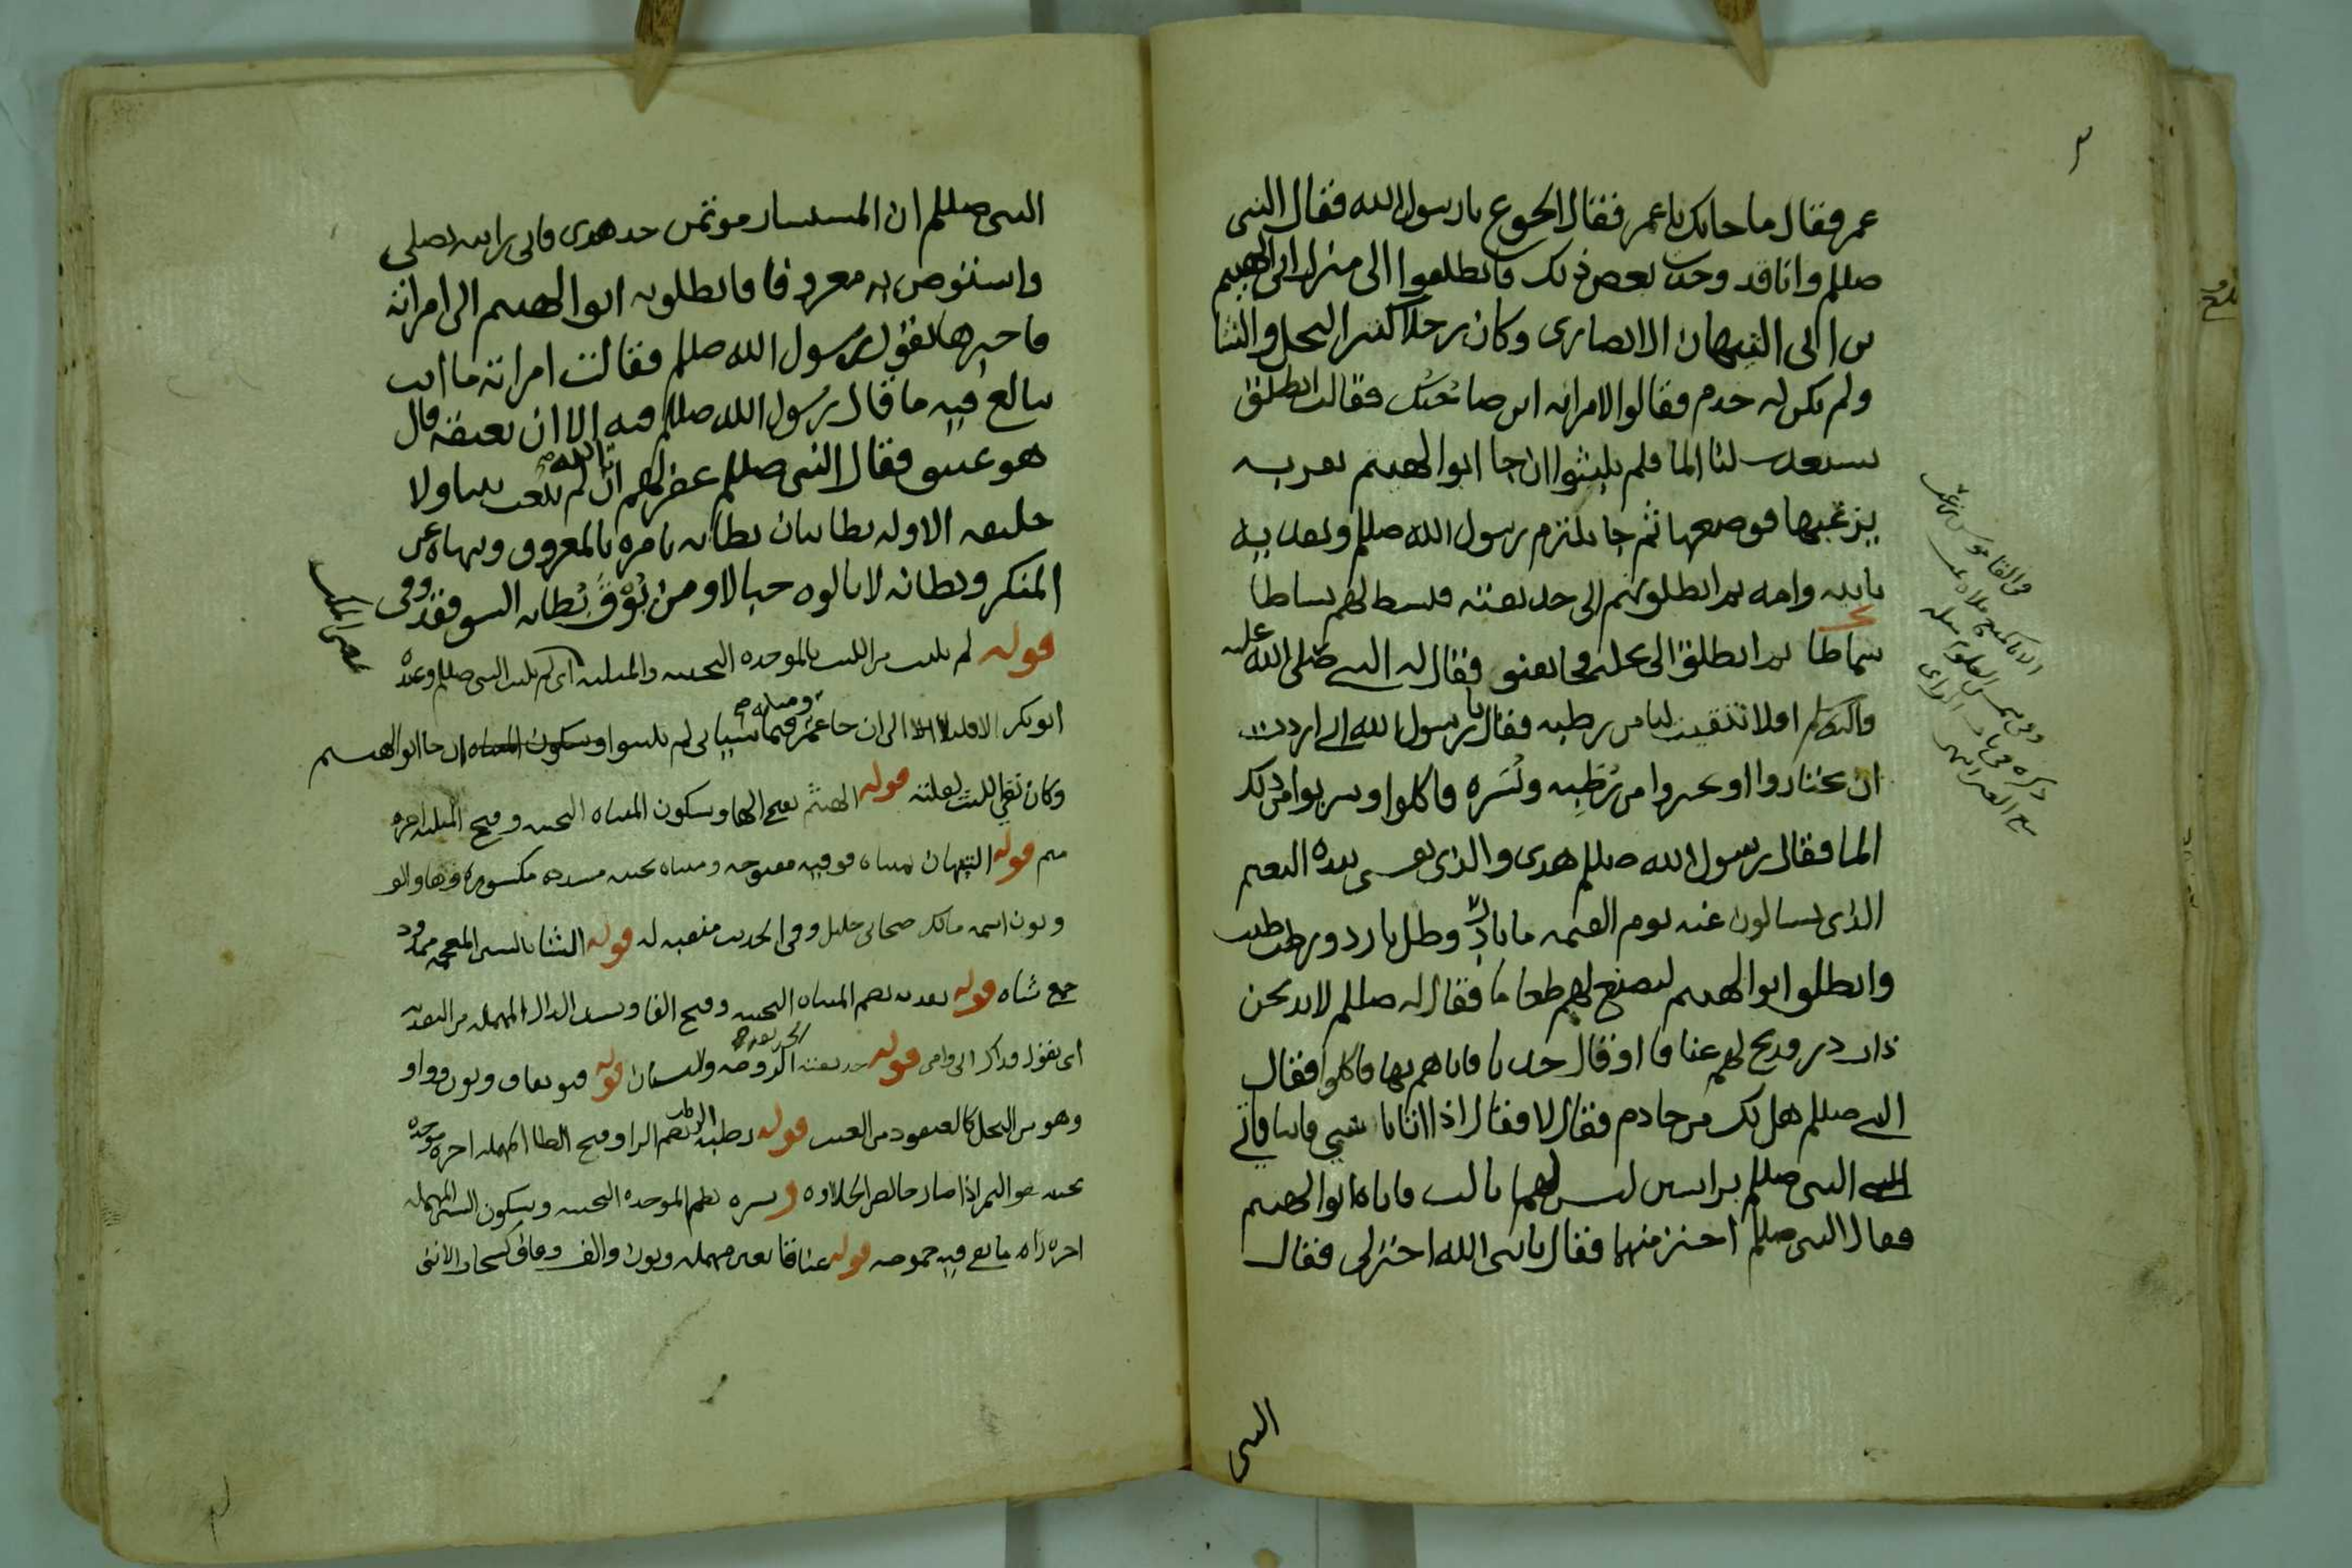 عمر فقال ما جابك يا عمر فقال الجوع يا رسول الله فقال النبي
صللم وانا قد وجدت بعض ذلك فانطلقوا الى منزل ابي الهيثم
بن ابي التيهان الانصاري وكان رجلا كثير النخل والشا
ولم يكن له خدم فقالوا لامراته اين صاحبك فقالت انطلق
يستعذب لنا الما فلم يلبثوا ان جا ابو الهيثم بقربه
يزعبها فوضعها ثم جا يلتزم رسول الله صللم ويفديه
بابيه وامه ثم انطلق بهم الى حديقته فبسط لهم بساطا
سماطا ثم انطلق الى نخله فجا بقنو فقال له النبي صلى الله عليه
واله وسلم افلا تنقيت لنا من رطبه فقال يا رسول الله اني اردت
ان تختاروا او تخيروا من رطبه وبسره فاكلوا وشربوا من ذلك
الما فقال رسول الله صللم هذى والذي نفسي بيده النعيم
الذي تسالون عنه يوم القيمه ما بارد وظل بارد ورطب طيب
وانطلق ابو الهيثم ليصنع لهم طعاما فقال له صللم لا تذبحن
ذات در فذبح لهم عناقا او قال جديا فاتاهم بها فاكلوا فقال
النبي صللم هل لك من خادم فقال لا فقال اذا اتانا شيي فاتنا فاتي
النبي صللم براسين ليس لهما ثالث فاتاه ابو الهيثم
فقال النبي صللم اختر منهما فقال يا نبي الله اختر لي فقال
النبي
النبي صللم ان المستشار موتمن خذ هذى فاني رايته يصلي
واستوص به معروفا فانطلق به ابو الهيثم الى امراته
فاخبرها بقول رسول الله صللم فقالت امراته ما انت
ببالغ فيه ما قال رسول الله صللم فيه الا ان تعتقه قال
هو عتيق فقال النبي صللم ان الله لم يبعث نبيا ولا
خليفه الا وله بطانتان بطانه تامره بالمعروف وتنهاه عن
المنكر وبطانه لا تالوه خبالا ومن يوق بطانه السو فقد وقى
قوله لم يلبث من اللبث بالموحده التحتيه والمثلثه اي لم يلبث النبي صللم وعنده
ابو بكر الا قليلا الى ان جا عمر ومثله فيما سياتي لم يلبثوا ان جا ابو الهيثم
وكان نفي اللبث لقلته قوله الهيثم بفتح الها وسكون المثناه التحتيه وفتح المثلثه اخره
ميم قوله التيهان بمثناه فوقيه مفتوحه ومثناه تحتيه مشدده مكسوره وها والف
ونون اسمه مالك صحابي جليل وفي الحديث منقبه له قوله الشا بالشين المعجمه ممدود
جمع شاه قوله يفديه بضم المثناه التحتيه وفتح الفا وتشديد الدال المهمله من التفديه
اي يقول فداك ابي وامي قوله حديقته الروضه والبستان قوله قنو بقاف ونون وواو
وهو من النخل كالعنقود من العنب قوله رطبه بضم الرا وفتح الطا المهمله اخره موحده
تحتيه هو الثمر اذا صار خالص الحلاوه وبسره بضم الموحده التحتيه وسكون السين المهمله
اخره را ما بقي فيه حموضه قوله عناقا بعين مهمله ونون والف وقاف كسحاب الانثى